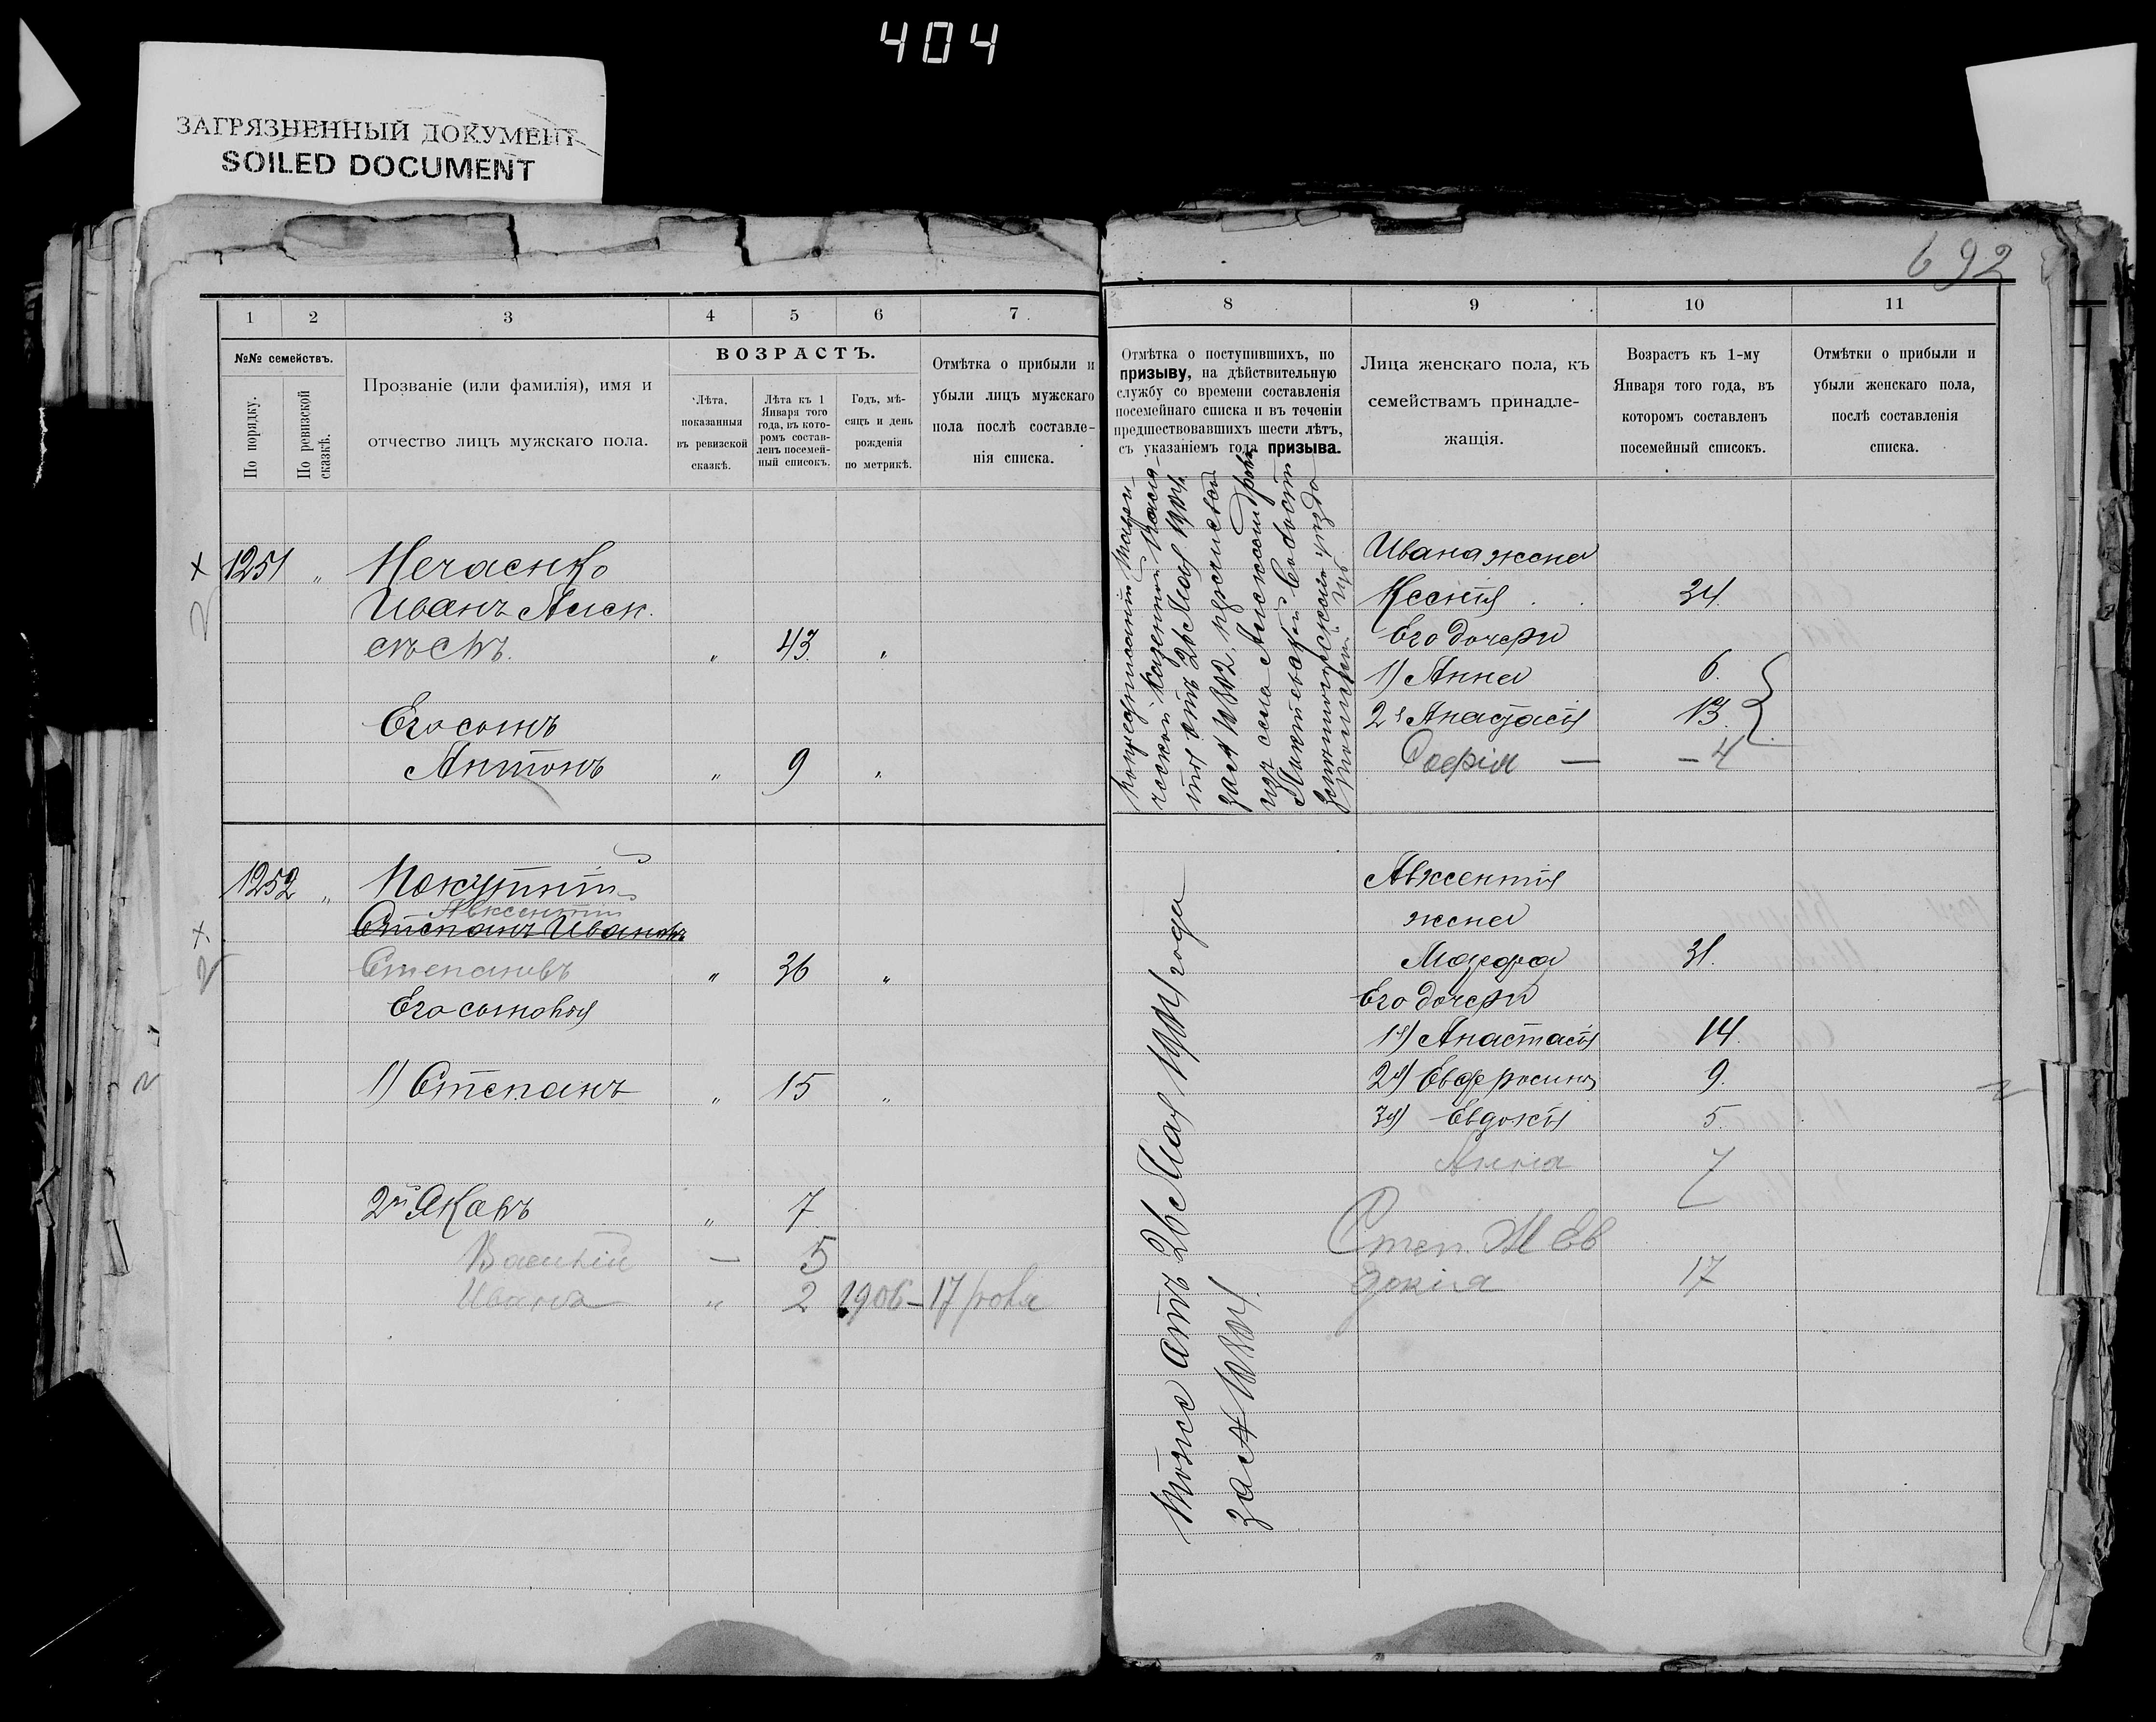 404
ЗАГРЯЗНЕННЫЙ ДОКУМЕНТ
SOILED DOCUMENT
1 2 3 4 5 6 7
№№ семействъ.
По порядку.
По ревизской сказкѣ.
Прозваніе (или фамилія), имя и
отчество лицъ мужскаго пола.
ВОЗРАСТЪ.
Лѣта,
показанныя
въ ревизской
сказкѣ.
Лѣта къ 1
Января того
года, въ кото-
ромъ состав-
ленъ посемей-
ный списокъ.
Годъ, мѣ-
сяцъ и день
рожденія
по метрикѣ.
Отмѣтка о прибыли и
убыли лицъ мужскаго
пола послѣ составле-
нія списка.
1251 „
Иванъ Алек
сѣевъ. „ 43. „
Его сынъ
Антонъ „ 9 „
1252 „
Авксентій
Степанъ Ивановъ
Степановъ „ 36 „
Его сыновья
1) Степанъ „ 15 „
2й Яковъ „ 7
Василій — 5
Иванъ „ 2 1906 – 17
692
8 9 10 11
Отмѣтка о поступившихъ, по
призыву, на дѣйствительную
службу со времени составленія
посемейнаго списка и въ теченіи
предшествовавшихъ шести лѣтъ,
съ указаніемъ года призыва.
Лица женскаго пола, къ
семействамъ принадле-
жащія.
Возрастъ къ 1-му
Января того года, въ
которомъ составленъ
посемейный списокъ.
Отмѣтки о прибыли и
убыли женскаго пола,
послѣ составленія
списка.
отъ 26 Мая
Ивана жена
Ксенія 34.
Его дочери
1) Анна 6.
2я Анастасія 13.
Софія — – 4
Тоже отъ 26 Мая года
за №
Авксентія
жена
Марфа 31.
Его дочери
1я) Анастасія 14.
2я) Евфросинія 9.
3я) Евдокія 5.
Анна 7
Степ. Ж Ев
докія 17